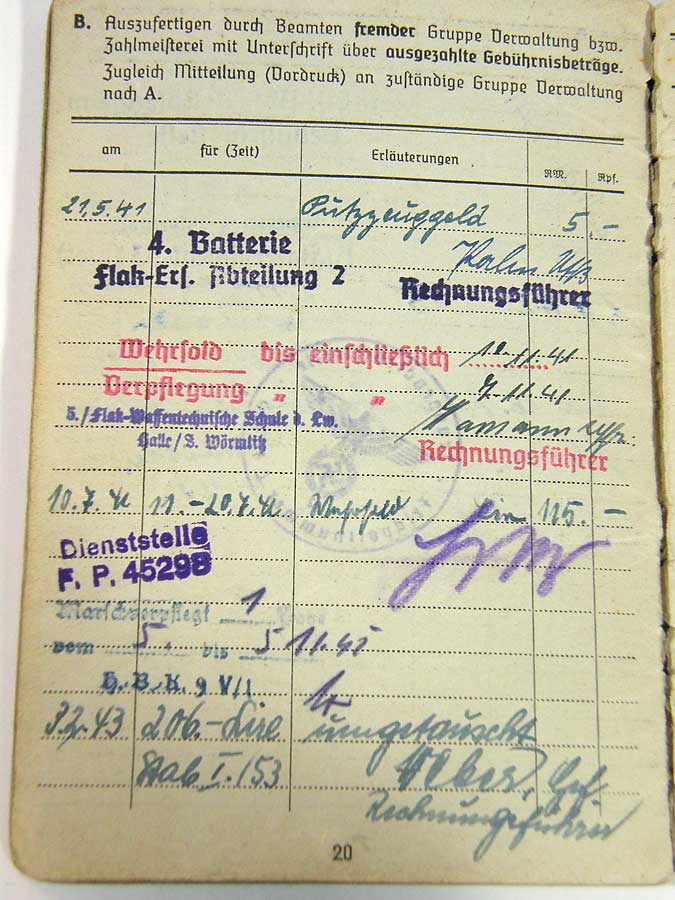 B. Auszufertigen durch Beamten fremder Gruppe Verwaltung bzw.
Zahlmeisterei mit Unterschrift über ausgezahlte Gebührnisbeträge.
Zugleich Mitteilung (Vordruck) an zuständige Gruppe Verwaltung
nach A.
am für (Zeit) Erläuterungen RM. Rpf.
21.5.41 Putzzeuggeld 5.-
4. Batterie
Flak-Ers. Abteilung 2 Uffz
Rechnungsführer
Wehrsold bis einschließlich 10.11.41
Verpflegung " " 9.11.41
5./Flak-Waffentechnische Schule d. Lw. Hamann Uffz.
Halle/S. Wörmlitz Rechnungsführer
10.7.42 11.-20.7.42 Wehrsold Lire 115.-
Dienststelle
F. P. 45298
Marschverpflegt 1 Tage
vom 5. bis 5 11.45
H.B.K. 9 V/1
3.2.43 206.-Lire umgetauscht
Stab I./53 Gef
Rechnungsführer
20